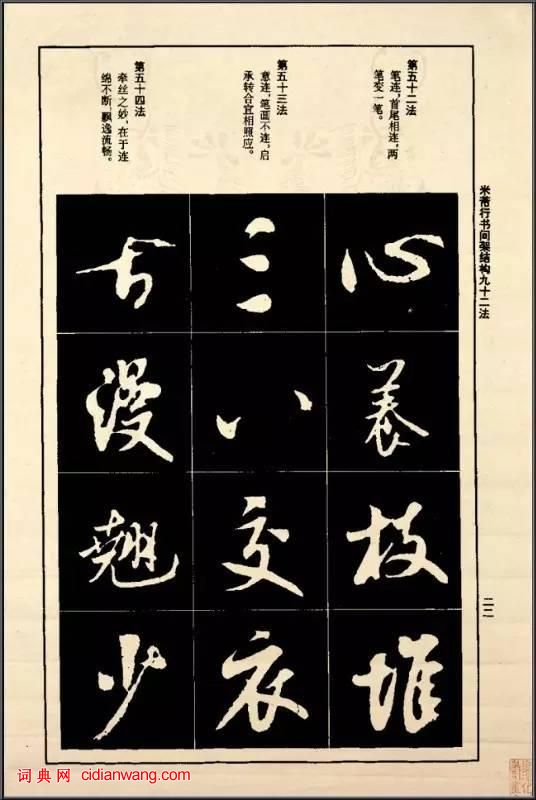 米芾行书间架结构九十二法
第五十二法
笔连，首尾相连，两
笔变一笔。
心
养
枝
堆
第五十三法
意连，笔画不连，启
承转合宜相照应。
三
八
交
衣
第五十四法
牵丝之妙，在于连
绵不断，飘逸流畅。
古
漫
翘
少
二二
词典网 cidianwang.com